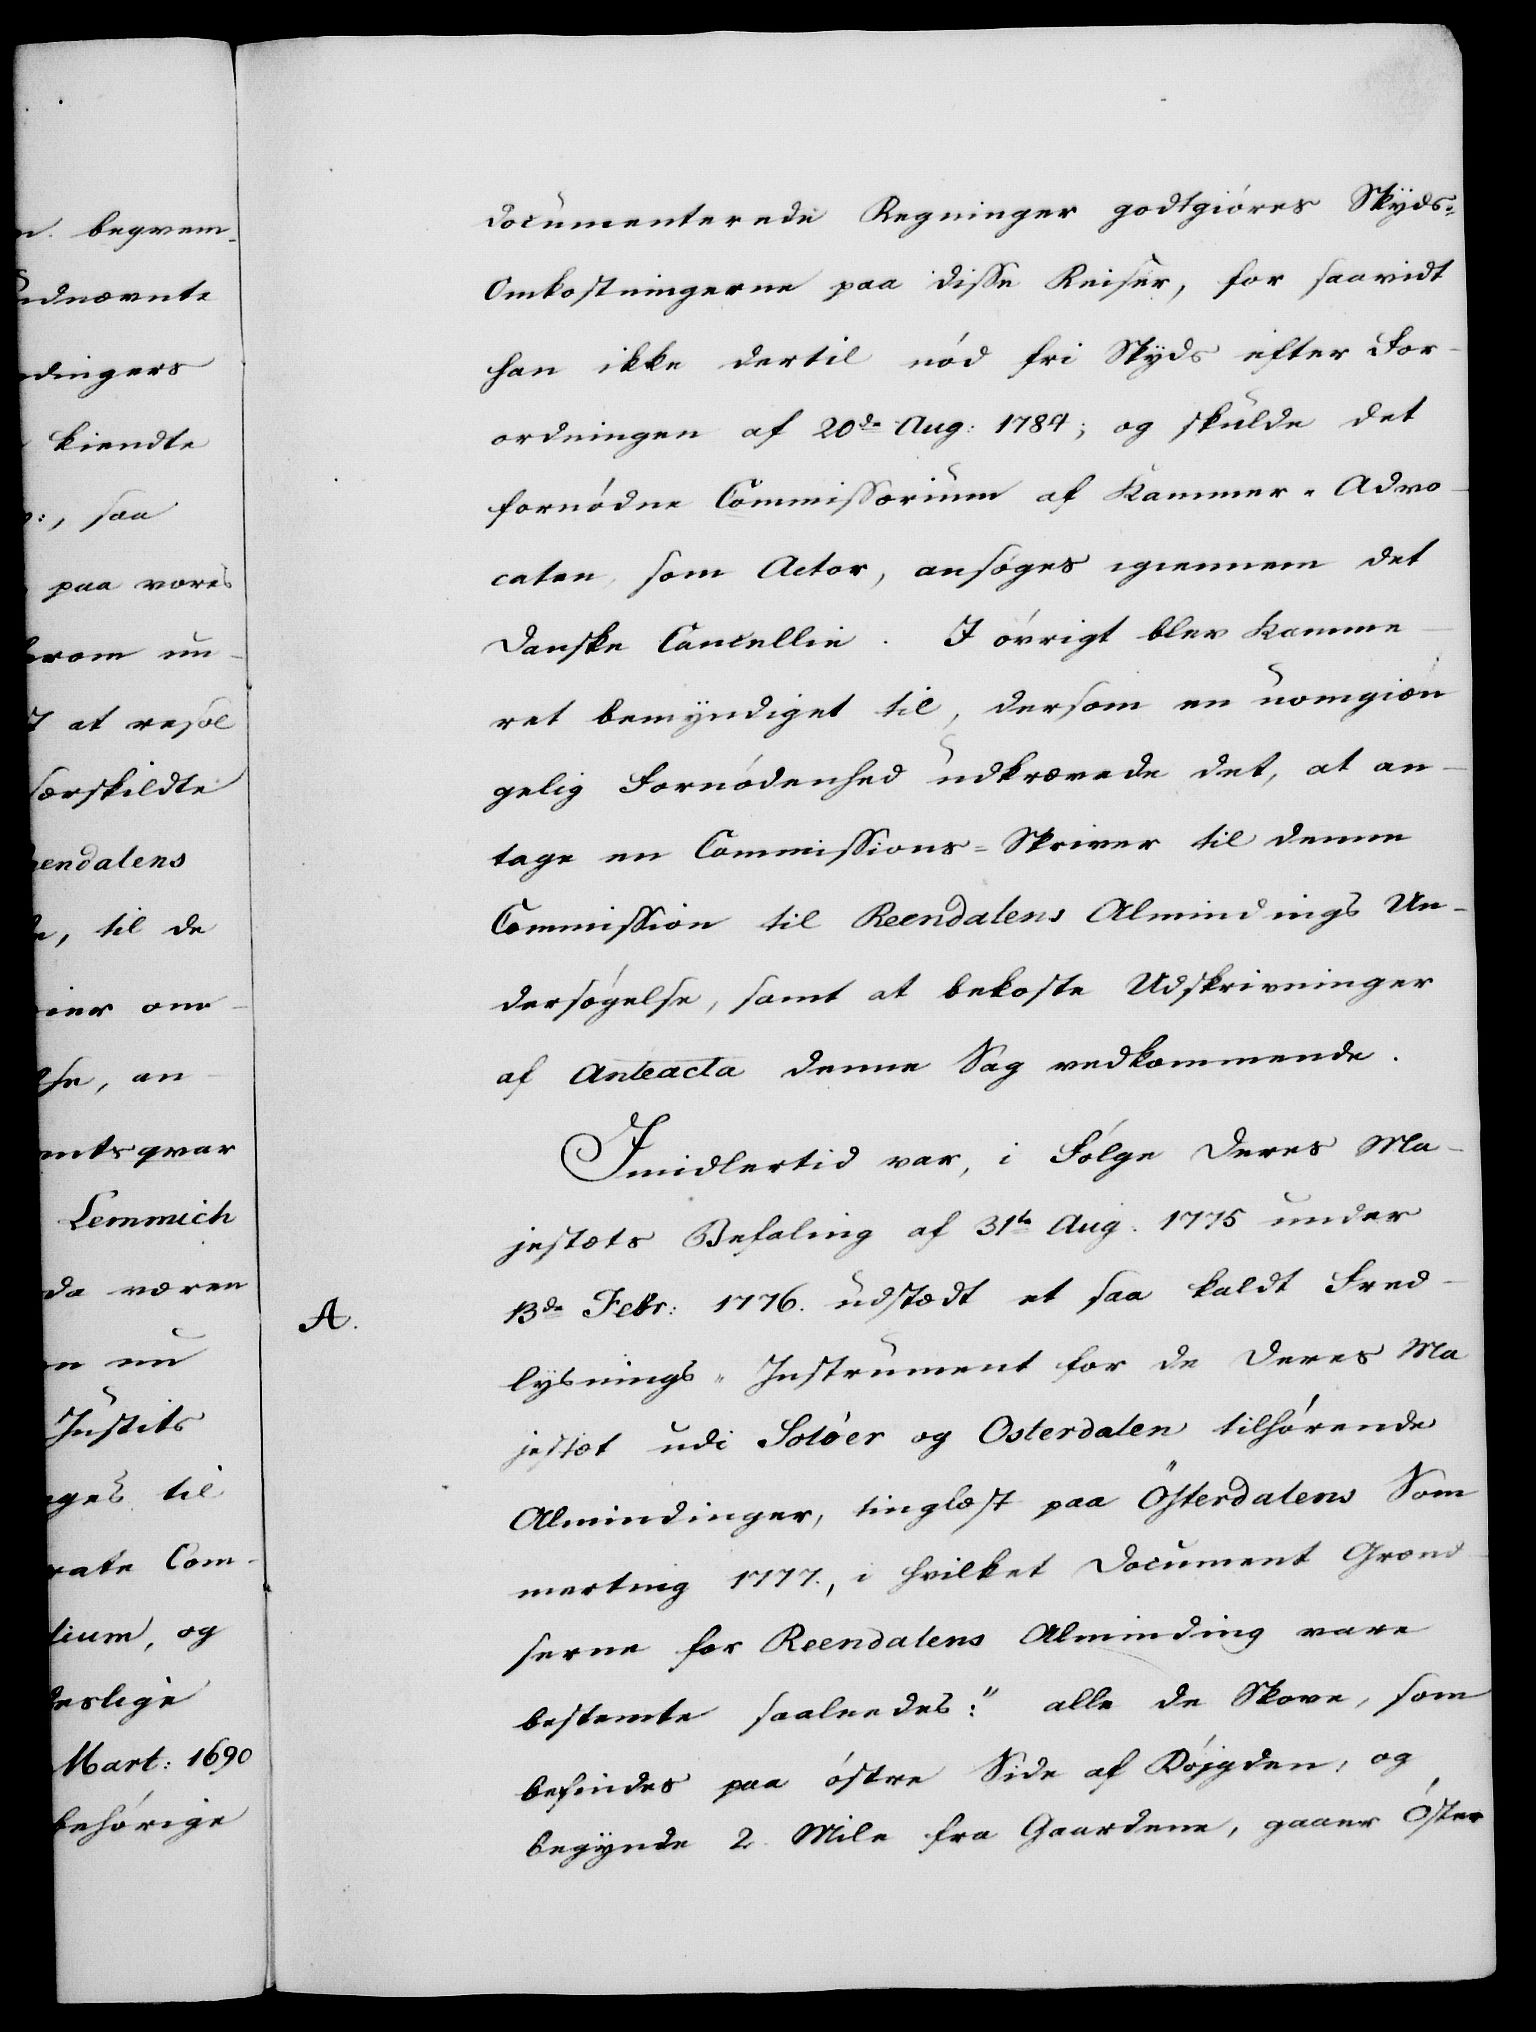 n. beqvem-
ndnævnte
ndingers
kiendte
:, saa
paa vores
erom un-
7 at resol
særskildte
eendalens
e, til de
ier om-
lse, an-
ntsqvar
Lemmich
da væren
n nu
Justits
ges til
rate Com-
lium, og
deslige
Mart: 1690
behörige
documenterede Regninger godtgiöres Skÿds-
Omkostningerne paa disse Reiser, for saavidt
han ikke dertil nöd fri Skÿds efter For-
ordningen af 20de Aug: 1784; og skulde det
fornödne Commissorium af Kammer-Advo-
caten, som Actor, ansöges igiennem det
danske Cancellie. I övrigt blev Kamme-
ret bemÿndiget til, dersom en uomgiæn
gelig Fornödenhed udkrævede det, at an-
tage en Commissions-Skriver til denne
Commission til Reendalens Almindings Un-
dersögelse, samt at bekoste Udskrivninger
af Anteacta denne Sag vedkommende.
Imidlertid var, i Fölge Deres Ma-
jestæts Befaling af 31te Aug. 1775 under
A. 13de Febr: 1776. udstædt et saa kaldt Fred-
lysnings-Instrument for de Deres Ma
jestæt udi Solöer og Osterdalen tilhörende
Almindinger, tinglæst paa Österdalens Som
merting 1777., i hvilket Document Grænd-
serne for Reendalens Alminding vare
bestemte saaledes: " alle de Skove, som
befindes paa östre Side af Döjgden, og
begÿnde 2 Mile fra Gaardene, gaaer Öster